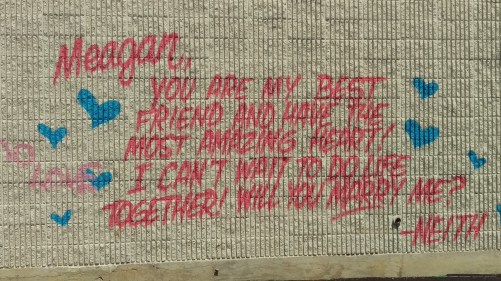 Meagan,,
YOU ARE MY BEST
FRIEND AND HAVE THE
MOST AMAZING HEART!
I CAN'T WAIT TO DO LIFE
TOGETHER! WILL YOU MARRY ME?
-NEITH